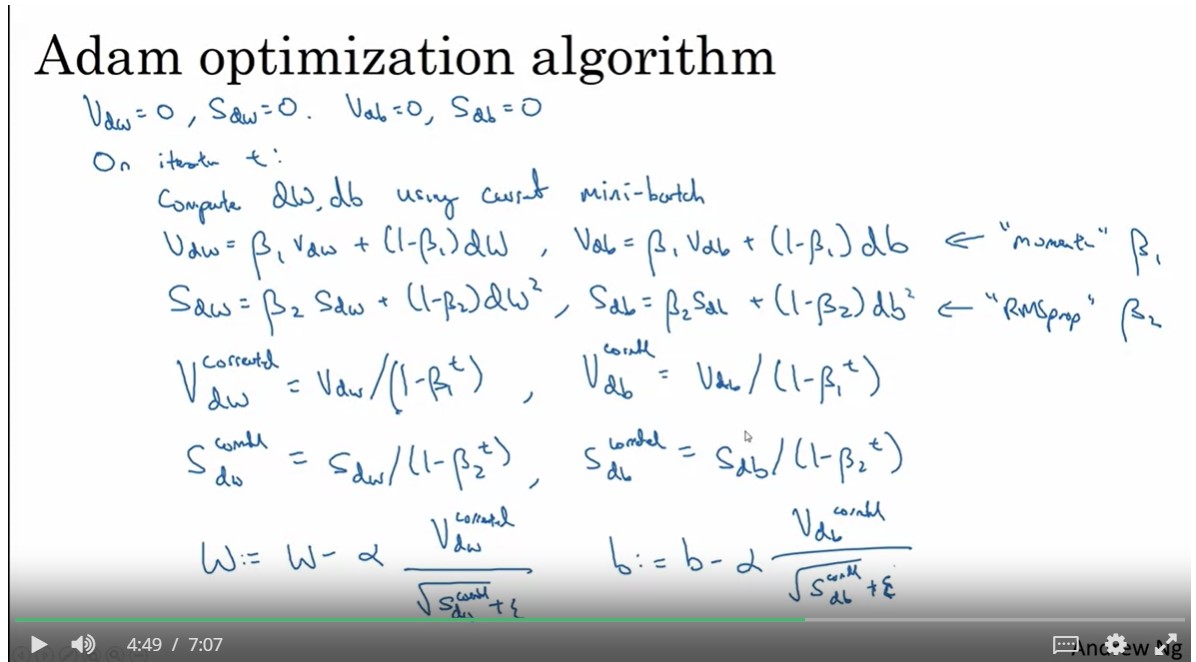 Adam optimization algorithm
V_dw = 0, S_dw = 0. V_db = 0, S_db = 0
On iteration t:
Compute dW, db using current mini-batch
V_dw = β₁ V_dw + (1-β₁) dW, V_db = β₁ V_db + (1-β₁) db ← "momentum" β₁
S_dw = β₂ S_dw + (1-β₂) dW², S_db = β₂ S_db + (1-β₂) db² ← "RMSprop" β₂
V_dw^corrected = V_dw/(1-β₁^t), V_db^corrected = V_db/(1-β₁^t)
S_dw^corrected = S_dw/(1-β₂^t), S_db^corrected = S_db/(1-β₂^t)
W := W - α V_dw^corrected / (√S_dw^corrected + ε) b := b - α V_db^corrected / (√S_db^corrected + ε)
4:49 / 7:07
Andrew Ng